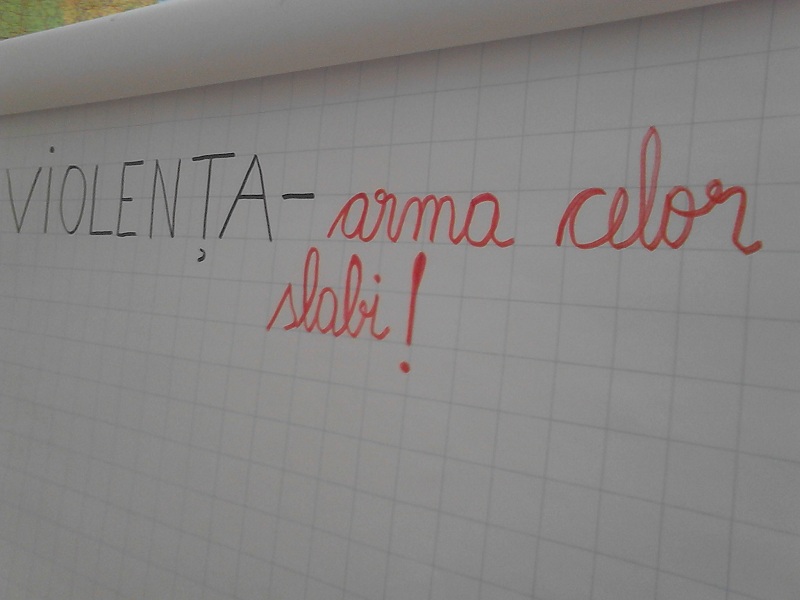 ViOLENȚA - arma celor
slabi!